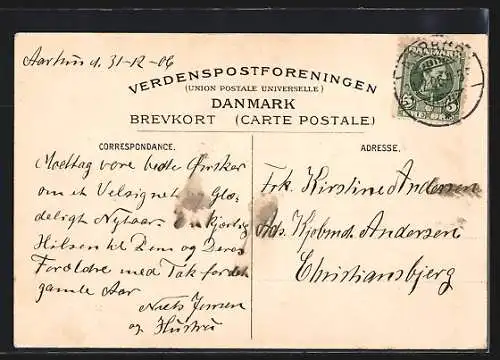 Aarhus d. 31-12-06
VERDENSPOSTFORENINGEN
(UNION POSTALE UNIVERSELLE)
DANMARK
BREVKORT (CARTE POSTALE)
5 5
CORRESPONDANCE.
ADRESSE.
Modtag vore bedte Ønsker
om et Velsignet Glæ-
deligt Nytaar. En kjærlig
Hilsen til Dem og Deres
Forældre med Tak for det
gamle Aar
Niels Jensen
og Hustru
Frk. Kirstine Andersen
Ads. Kjøbmd. Andersen
Christiansbjerg